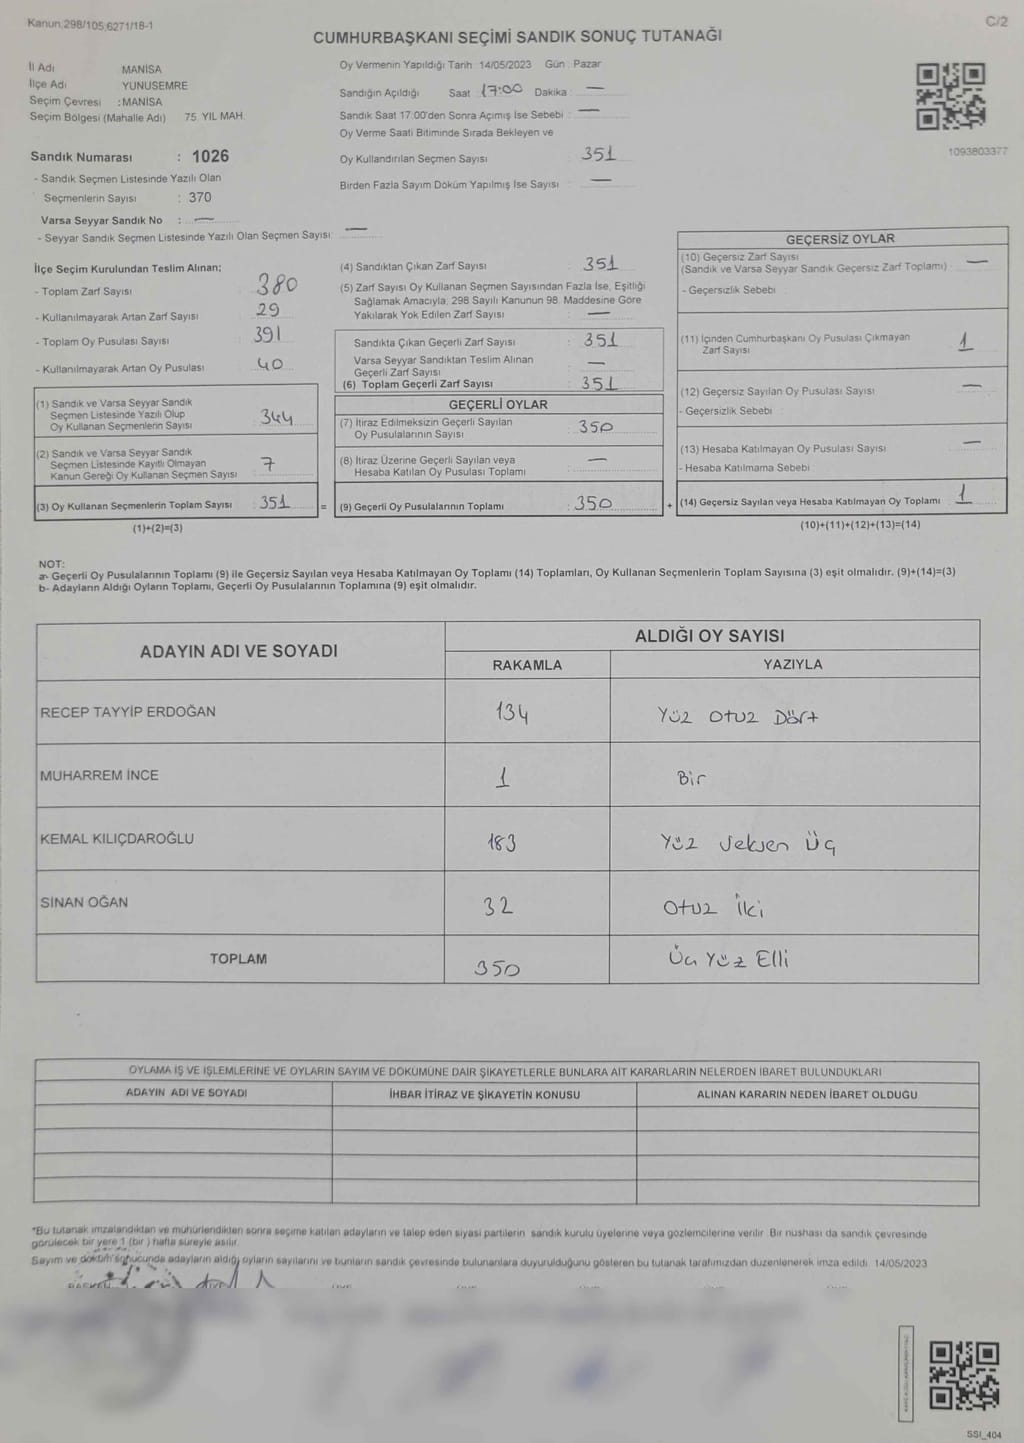 Kanun:298/105;6271/18-1
C/2
CUMHURBAŞKANI SEÇİMİ SANDIK SONUÇ TUTANAĞI
İl Adı MANİSA
İlçe Adı YUNUSEMRE
Seçim Çevresi :MANİSA
Seçim Bölgesi (Mahalle Adı) 75. YIL MAH.
Sandık Numarası : 1026
- Sandık Seçmen Listesinde Yazılı Olan
Seçmenlerin Sayısı : 370
Varsa Seyyar Sandık No : —
- Seyyar Sandık Seçmen Listesinde Yazılı Olan Seçmen Sayısı: —
Oy Vermenin Yapıldığı Tarih: 14/05/2023 Gün : Pazar
Sandığın Açıldığı Saat 17:00 Dakika : —
Sandık Saat 17.00'den Sonra Açımış İse Sebebi : —
Oy Verme Saati Bitiminde Sırada Bekleyen ve
Oy Kullandırılan Seçmen Sayısı : 351
Birden Fazla Sayım Döküm Yapılmış İse Sayısı : —
1093803377
İlçe Seçim Kurulundan Teslim Alınan;
- Toplam Zarf Sayısı : 380
- Kullanılmayarak Artan Zarf Sayısı : 29
- Toplam Oy Pusulası Sayısı : 391
- Kullanılmayarak Artan Oy Pusulası : 40
(1) Sandık ve Varsa Seyyar Sandık
Seçmen Listesinde Yazılı Olup
Oy Kullanan Seçmenlerin Sayısı : 344
(2) Sandık ve Varsa Seyyar Sandık
Seçmen Listesinde Kayıtlı Olmayan
Kanun Gereği Oy Kullanan Seçmen Sayısı : 7
(3) Oy Kullanan Seçmenlerin Toplam Sayısı : 351
(1)+(2)=(3)
(4) Sandıktan Çıkan Zarf Sayısı : 351
(5) Zarf Sayısı Oy Kullanan Seçmen Sayısından Fazla İse, Eşitliği
Sağlamak Amacıyla, 298 Sayılı Kanunun 98. Maddesine Göre
Yakılarak Yok Edilen Zarf Sayısı : —
Sandıkta Çıkan Geçerli Zarf Sayısı : 351
Varsa Seyyar Sandıktan Teslim Alınan
Geçerli Zarf Sayısı : —
(6) Toplam Geçerli Zarf Sayısı : 351
GEÇERLİ OYLAR
(7) İtiraz Edilmeksizin Geçerli Sayılan
Oy Pusulalarının Sayısı : 350
(8) İtiraz Üzerine Geçerli Sayılan veya
Hesaba Katılan Oy Pusulası Toplamı : —
= (9) Geçerli Oy Pusulalarının Toplamı : 350
GEÇERSİZ OYLAR
(10) Geçersiz Zarf Sayısı
(Sandık ve Varsa Seyyar Sandık Geçersiz Zarf Toplamı) : —
- Geçersizlik Sebebi :
(11) İçinden Cumhurbaşkanı Oy Pusulası Çıkmayan
Zarf Sayısı 1
(12) Geçersiz Sayılan Oy Pusulası Sayısı —
- Geçersizlik Sebebi :
(13) Hesaba Katılmayan Oy Pusulası Sayısı —
- Hesaba Katılmama Sebebi
+ (14) Geçersiz Sayılan veya Hesaba Katılmayan Oy Toplamı : 1
(10)+(11)+(12)+(13)=(14)
NOT:
a- Geçerli Oy Pusulalarının Toplamı (9) ile Geçersiz Sayılan veya Hesaba Katılmayan Oy Toplamı (14) Toplamları, Oy Kullanan Seçmenlerin Toplam Sayısına (3) eşit olmalıdır. (9)+(14)=(3)
b- Adayların Aldığı Oyların Toplamı, Geçerli Oy Pusulalarının Toplamına (9) eşit olmalıdır.
ADAYIN ADI VE SOYADI ALDIĞI OY SAYISI
RAKAMLA YAZIYLA
RECEP TAYYİP ERDOĞAN 134 Yüz Otuz Dört
MUHARREM İNCE 1 Bir
KEMAL KILIÇDAROĞLU 183 Yüz Seksen Üç
SİNAN OĞAN 32 Otuz İki
TOPLAM 350 Üç Yüz Elli
OYLAMA İŞ VE İŞLEMLERİNE VE OYLARIN SAYIM VE DÖKÜMÜNE DAİR ŞİKAYETLERLE BUNLARA AİT KARARLARIN NELERDEN İBARET BULUNDUKLARI
ADAYIN ADI VE SOYADI İHBAR İTİRAZ VE ŞİKAYETİN KONUSU ALINAN KARARIN NEDEN İBARET OLDUĞU
*Bu tutanak imzalandıktan ve mühürlendikten sonra seçime katılan adayların ve talep eden siyasi partilerin sandık kurulu üyelerine veya gözlemcilerine verilir. Bir nüshası da sandık çevresinde
görülecek bir yere 1 (bir ) hafta süreyle asılır.
Sayım ve döküm sonucunda adayların aldığı oyların sayılarını ve bunların sandık çevresinde bulunanlara duyurulduğunu gösteren bu tutanak tarafımızdan düzenlenerek imza edildi. 14/05/2023
SSI_404